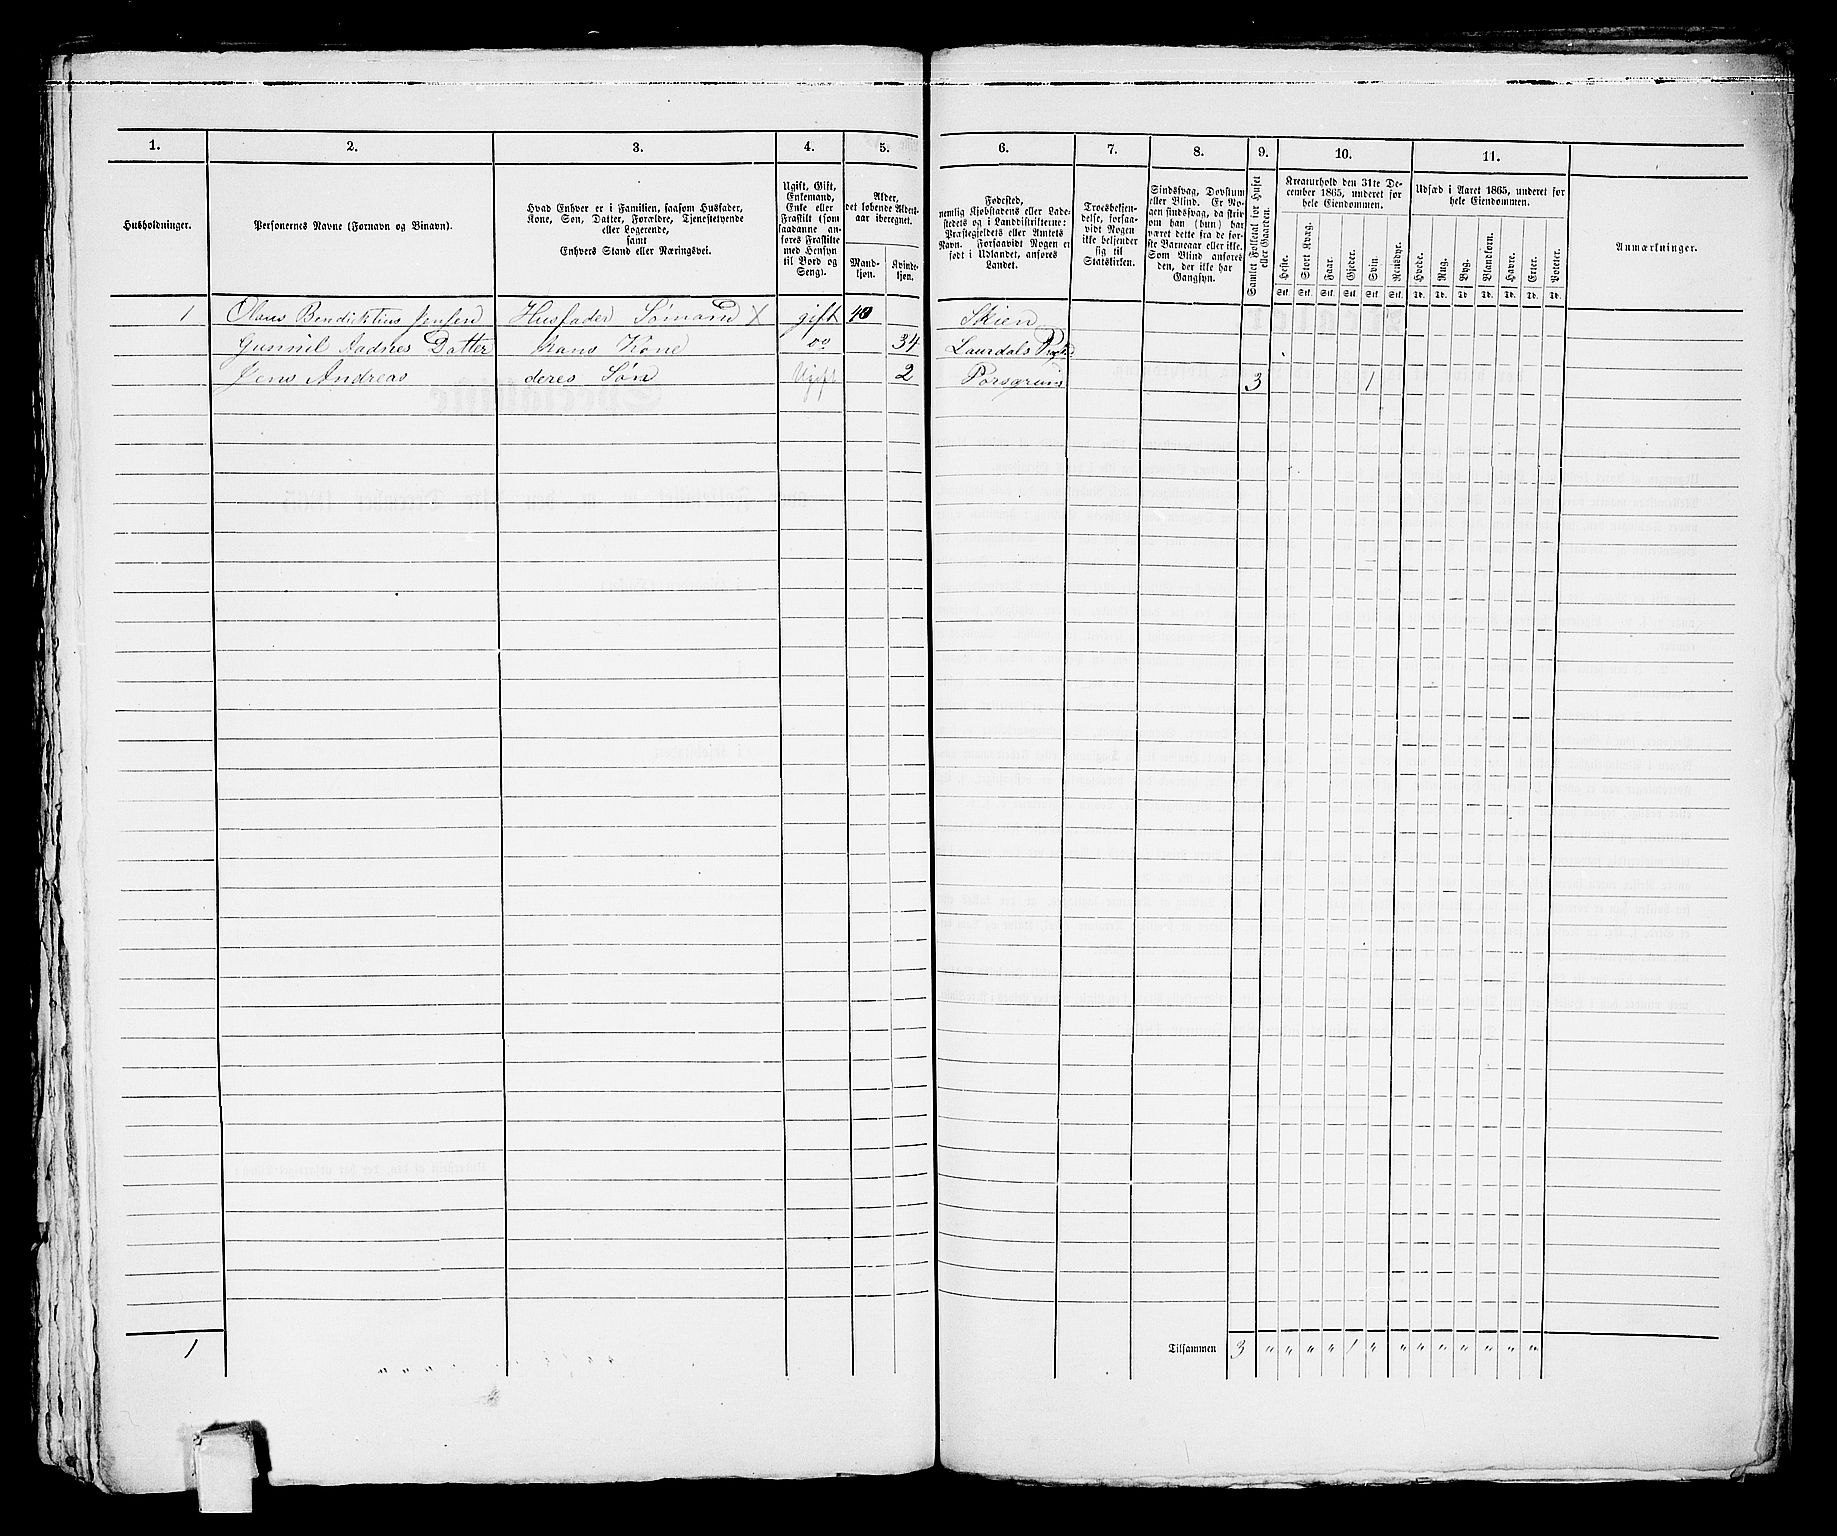 1. 2. 3. 4. 5. 6. 7. 8. 9. 10. 11.
Husholdninger.
Personernes Navne (Fornavn og Binavn).
Hvad Enhver er i Familien, saasom Husfader,
Kone, Søn, Datter, Forældre, Tjenestetyende
eller Logerende,
samt
Enhvers Stand eller Næringsvei.
Ugift, Gift,
Enkemand,
Enke eller
Fraskilt (som
saadanne an-
føres Fraskilte
med Hensyn
til Bord og
Seng).
Alder,
det løbende Alders-
aar iberegnet.
Mand-
kjøn.
Kvinde-
kjøn.
Fødested,
nemlig Kjøbstadens eller Lade-
stedets og i Landdistrikterne:
Præstegjeldets eller Amtets
Navn. Forsaavidt Nogen er
født i Udlandet, anføres
Landet.
Troesbekjen-
delse, forsaa-
vidt Nogen
ikke bekjender
sig til
Statskirken.
Sindssvag, Døvstum
eller Blind. Er No-
gen sindssvag, da skriv
om han (hun) har
været dette fra de før-
ste Barneaar eller ikke.
Som Blind anføres
den, der ikke har
Gangsyn.
Samlet Folketal for Huset
eller Gaarden.
Kreaturhold den 31te De-
cember 1865, underet for
hele Eiendommen.
Heste. Stort Kvæg. Faar. Gjeder. Svin. Rensdyr.
Stk. Stk. Stk. Stk. Stk. Stk.
Udsæd i Aaret 1865, underet for
hele Eiendommen.
Hvede. Rug. Byg. Blandkorn. Havre. Erter. Poteter.
Td. Td. Td. Td. Td. Td. Td.
Anmærkninger.
1 Olaus Bendiktius Jensen Husfader Sømand X gift 40 Skien
Gunnil Aadnes Datter hans Kone do 34 Laurdals
Jens Andreas deres Søn Ugift 2 Porsgrund 3 1
1 Tilsammen 3 " " " " 1 " " " " " " " "